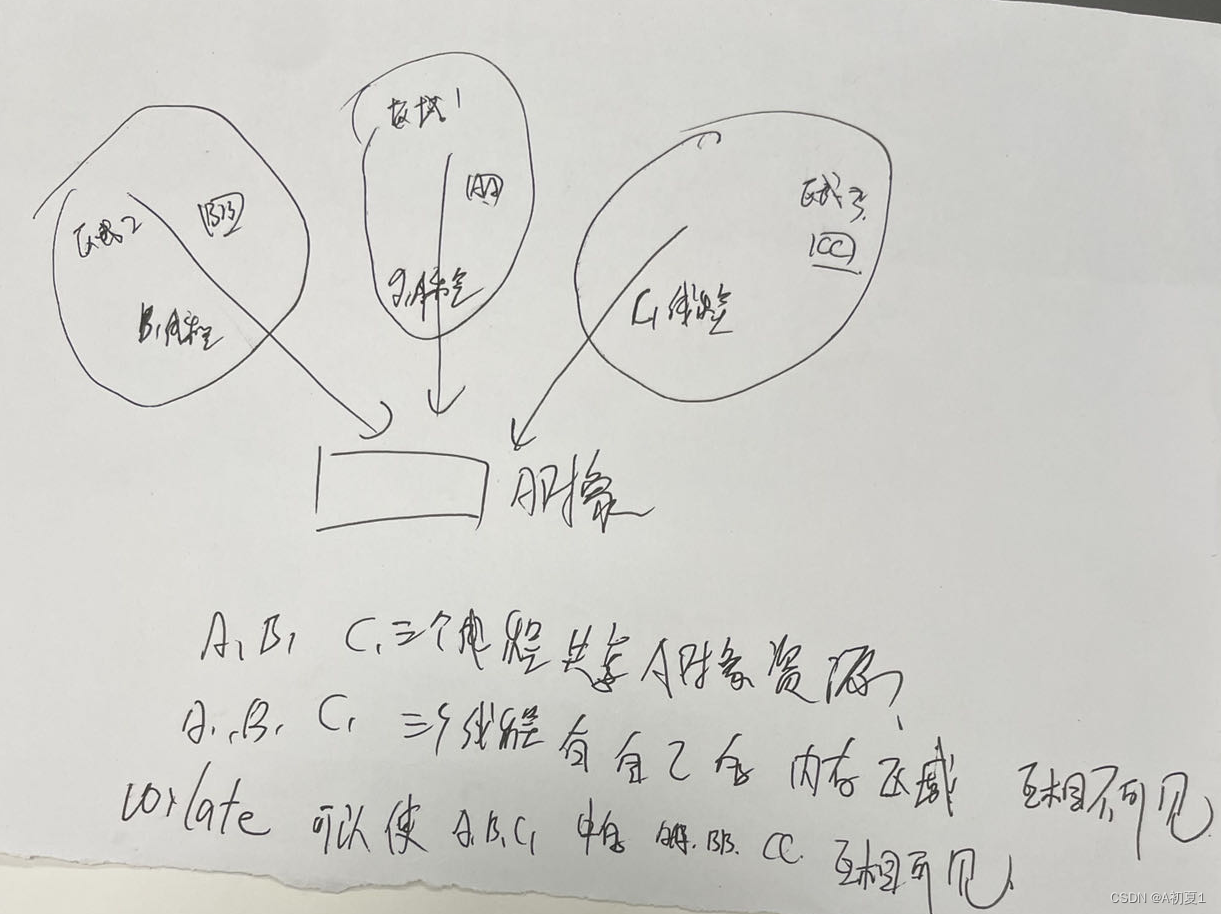 区域1
AA
A1线程
区域2
BB
B1线程
区域3
CC
C1线程
A对象
A1 B1 C1 三个线程共享A对象资源,
A1, B1, C1 三个线程有自己的内存区域、互相不可见
vorlate 可以使 A1 B1 C1 中的 AA. BB. CC. 互相可见
CSDN @A初夏1